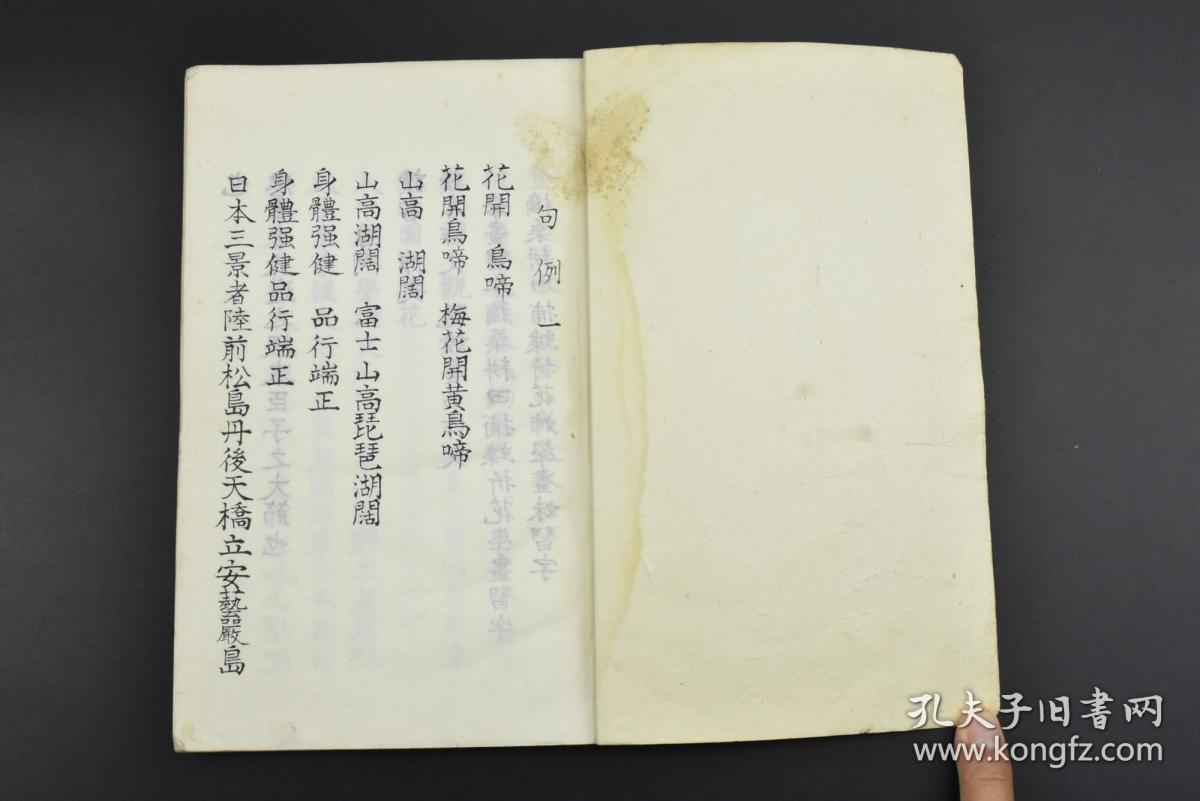 句例一
花開　鳥啼
花開鳥啼　梅花開黄鳥啼
山高　湖闊
山高湖闊　富士山高琵琶湖闊
身體强健　品行端正
身體强健品行端正
日本三景者陸前松島丹後天橋立安藝嚴島
孔夫子旧书网
www.kongfz.com